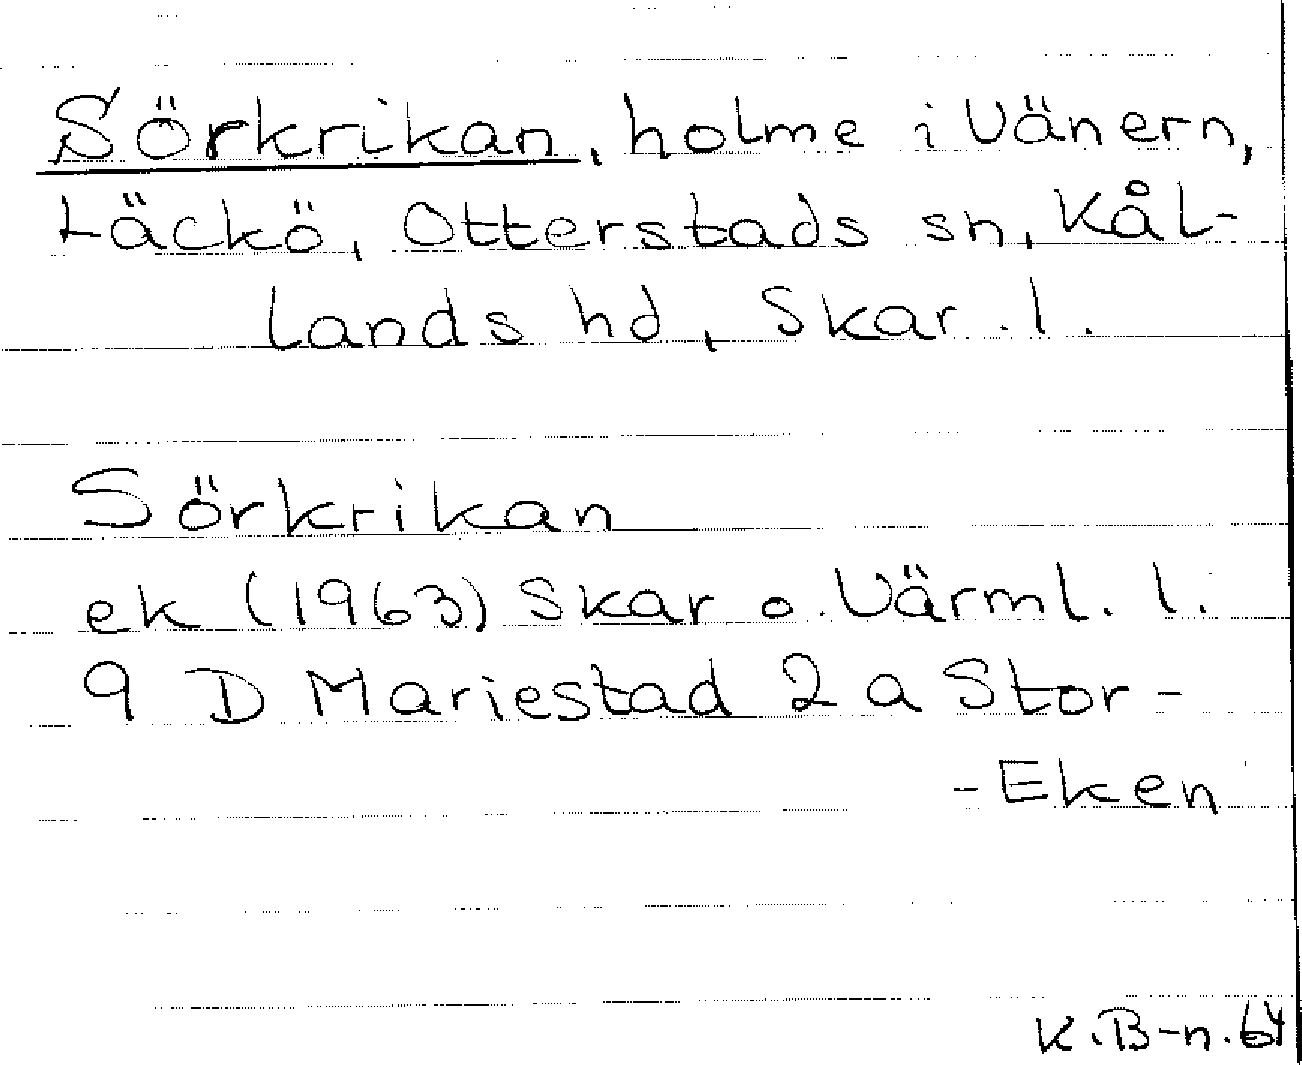 Sörkrikan, holme i Vänern,
Läckö, Otterstads sn, Kål-
lands hd, Skar. l.
Sörkrikan
ek (1963) Skar o. Värml. l.
9 D Mariestad 2 a Stor-
-Eken
K.B-n.64